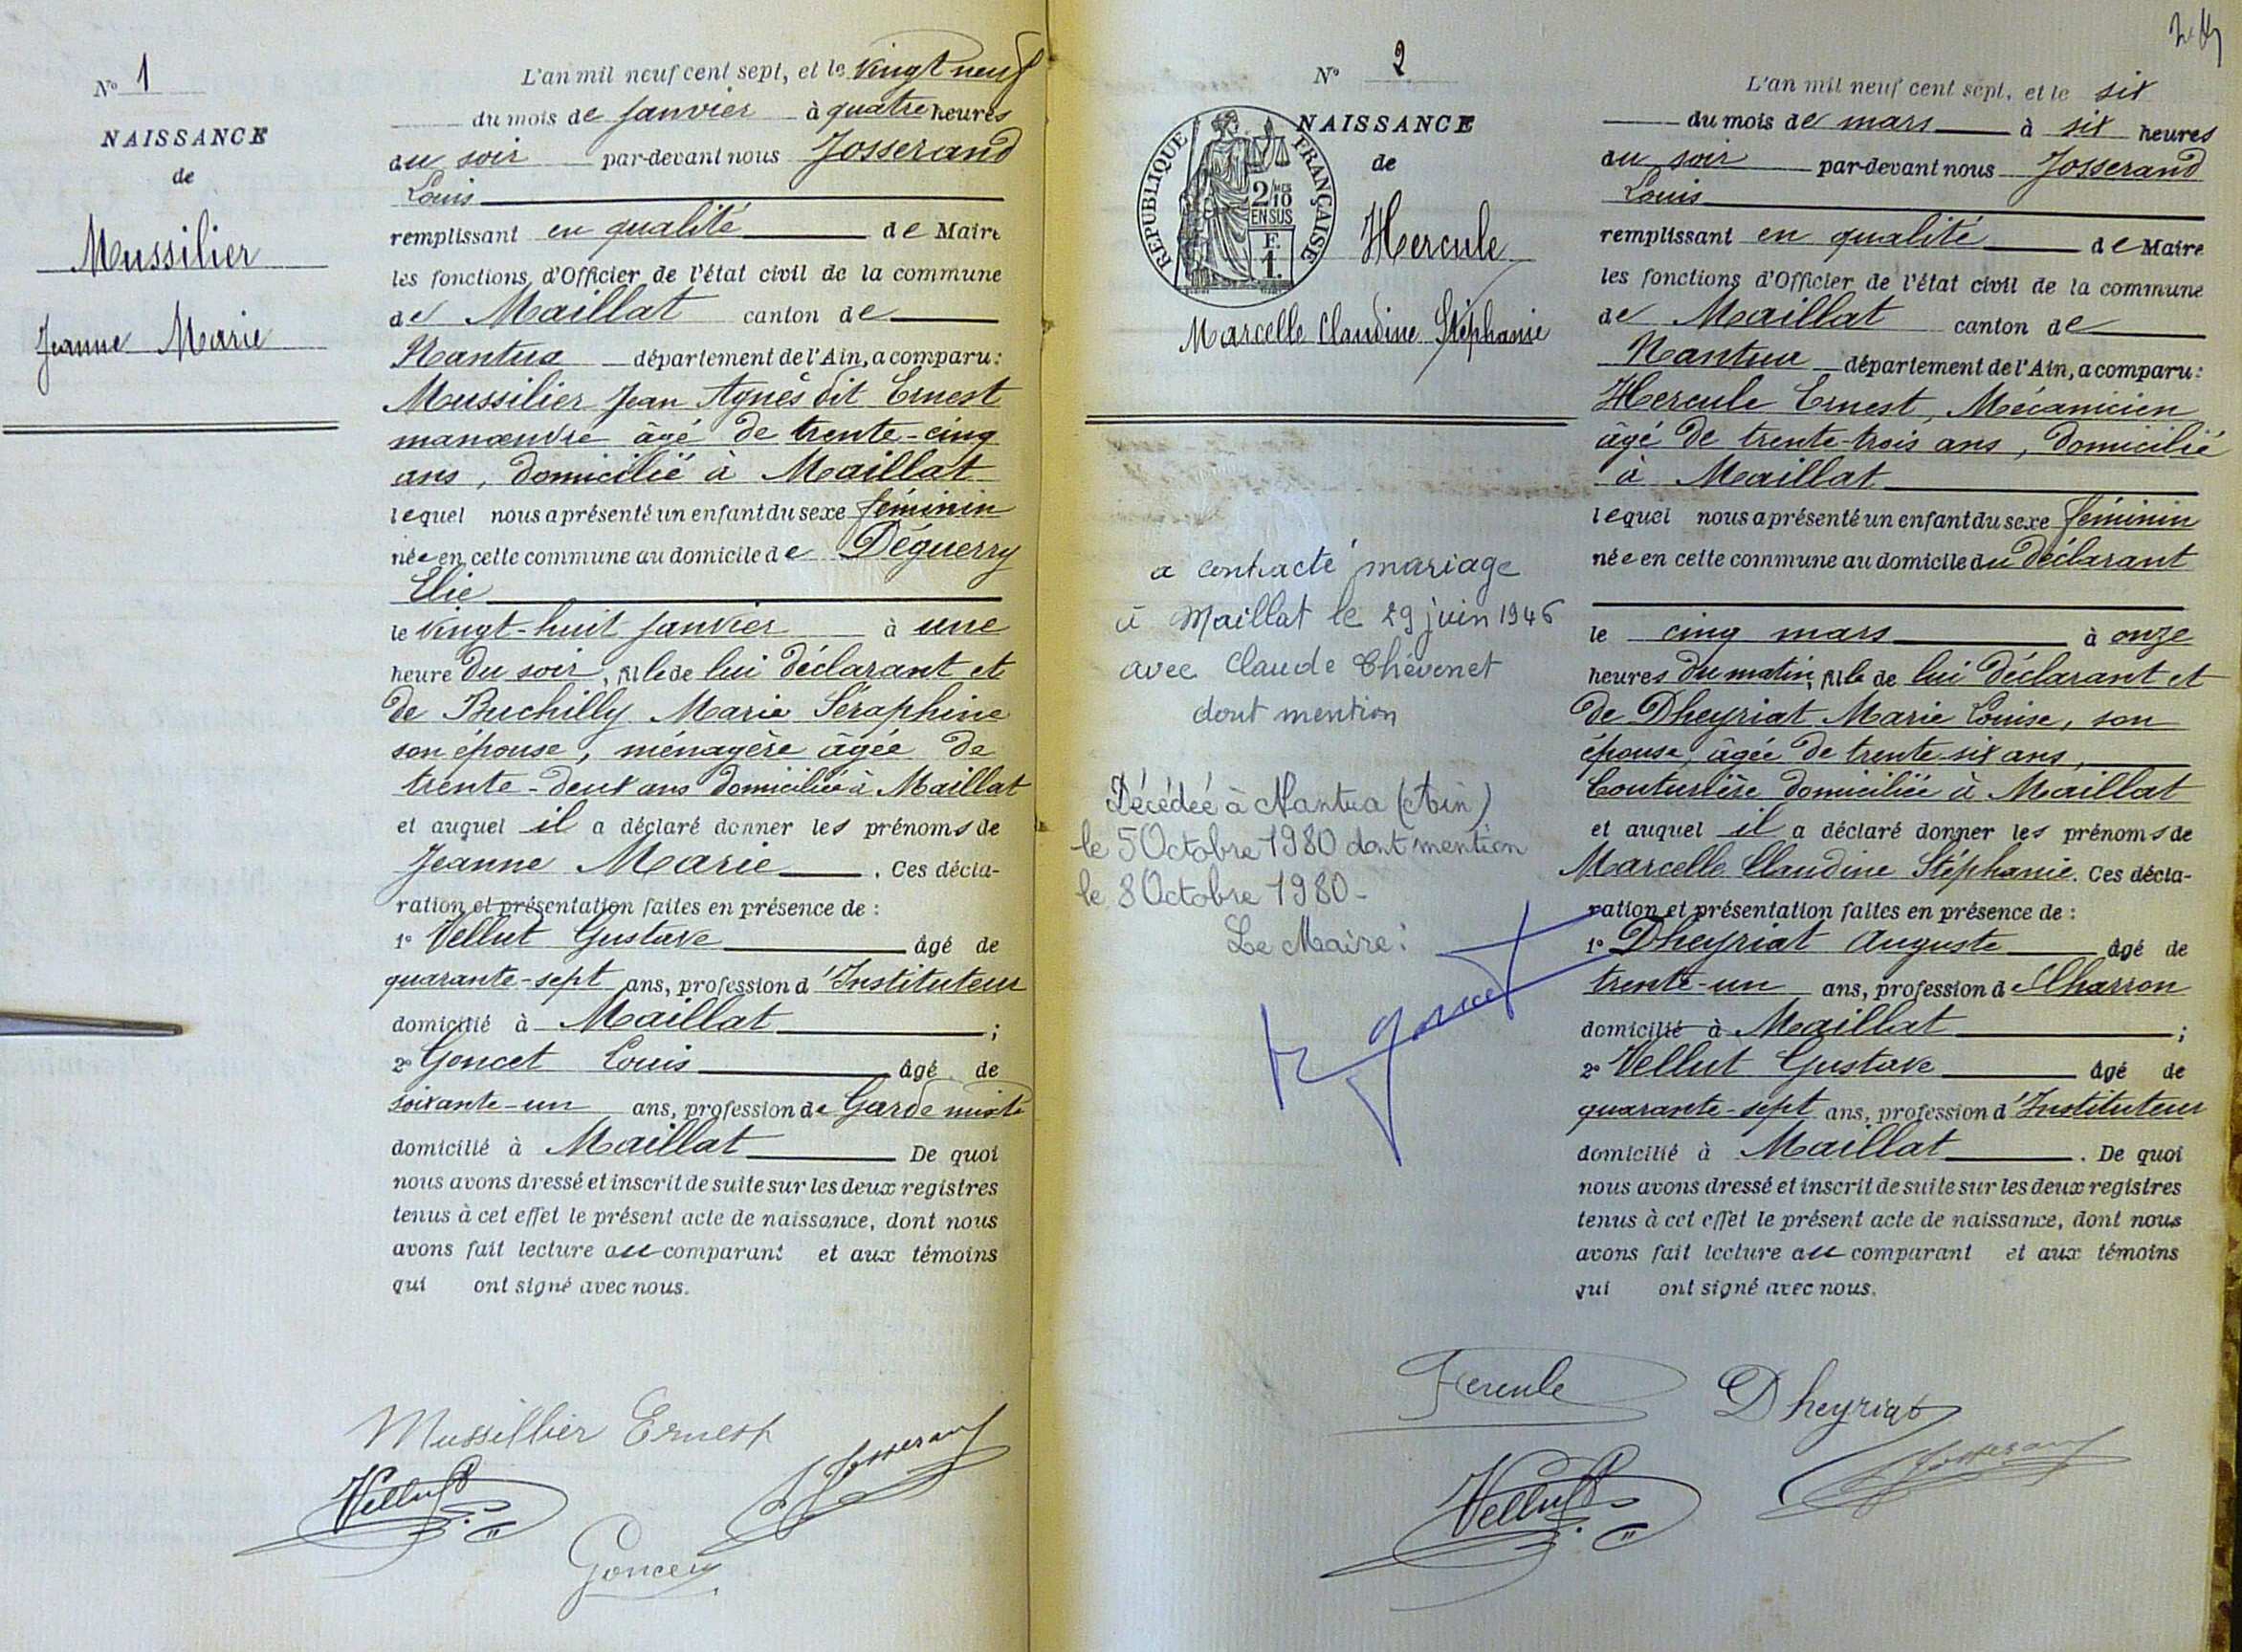 N° 1
NAISSANCE
de
Mussilier
Jeanne Marie
L'an mil neuf cent sept, et le vingt neuf
du mois de janvier à quatre heures
du soir par-devant nous Josserand
Louis
remplissant en qualité de Maire
les fonctions d'Officier de l'état civil de la commune
de Maillat canton de
Nantua département de l'Ain, a comparu :
Mussilier Jean Agnès dit Ernest
manœuvre âgé de trente-cinq
ans, domicilié à Maillat
lequel nous a présenté un enfant du sexe féminin
née en cette commune au domicile de Déguerry
Elie
le vingt-huit janvier à une
heure du soir, fille de lui déclarant et
de Buchilly Marie Séraphine
son épouse, ménagère âgée de
trente-deux ans domiciliée à Maillat
et auquel il a déclaré donner les prénoms de
Jeanne Marie . Ces décla-
ration et présentation faites en présence de :
1° Vellut Gustave âgé de
quarante-sept ans, profession d'Instituteur
domicilié à Maillat ;
2° Goncet Louis âgé de
soixante-un ans, profession de Garde mixte
domicilié à Maillat De quoi
nous avons dressé et inscrit de suite sur les deux registres
tenus à cet effet le présent acte de naissance, dont nous
avons fait lecture au comparant et aux témoins
qui ont signé avec nous.
Mussillier Ernest
Vellut
L Josserand
Goncet
N° 2
NAISSANCE
de
RÉPUBLIQUE FRANÇAISE
2/10
EN SUS
F.
1.
Hercule
Marcelle Claudine Stéphanie
a contracté mariage
à Maillat le 29 juin 1946
avec Claude Thévenet
dont mention
Décédée à Nantua (Ain)
le 5 Octobre 1980 dont mention
le 8 Octobre 1980-
Le Maire :
L'an mil neuf cent sept, et le six
du mois de mars à six heures
du soir par-devant nous Josserand
Louis
remplissant en qualité de Maire
les fonctions d'Officier de l'état civil de la commune
de Maillat canton de
Nantua département de l'Ain, a comparu :
Hercule Ernest, Mécanicien
âgé de trente-trois ans, domicilié
à Maillat
lequel nous a présenté un enfant du sexe féminin
née en cette commune au domicile du déclarant
le cinq mars à onze
heures du matin, fille de lui déclarant et
de Dheyriat Marie Louise, son
épouse, âgée de trente-six ans,
Couturière domiciliée à Maillat
et auquel il a déclaré donner les prénoms de
Marcelle Claudine Stéphanie. Ces décla-
ration et présentation faites en présence de :
1° Dheyriat Auguste âgé de
trente-un ans, profession de Charron
domicilié à Maillat ;
2° Vellut Gustave âgé de
quarante-sept ans, profession d'Instituteur
domicilié à Maillat . De quoi
nous avons dressé et inscrit de suite sur les deux registres
tenus à cet effet le présent acte de naissance, dont nous
avons fait lecture au comparant et aux témoins
qui ont signé avec nous.
Hercule
Dheyriat
Vellut
Josserand